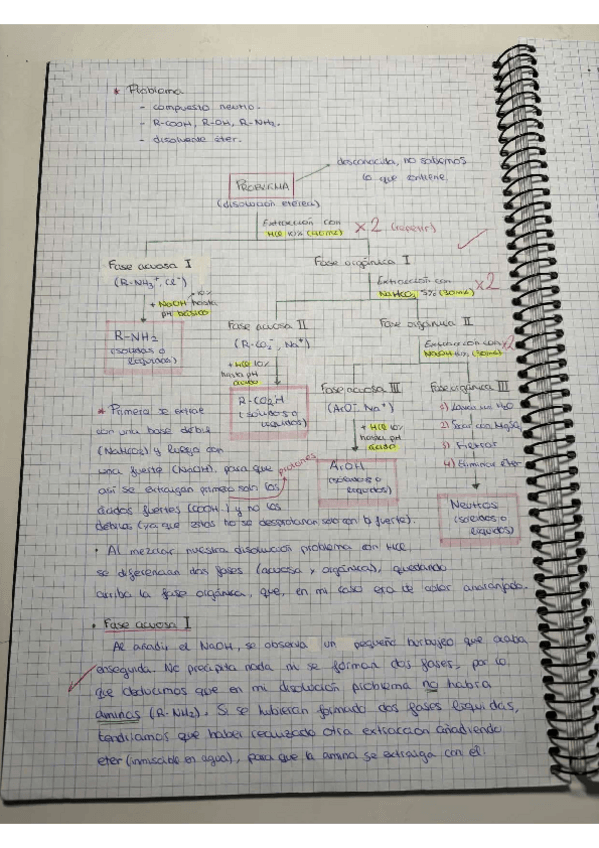 * Problema
- compuesto neutro.
- R-COOH, R-OH, R-NH₂.
- disolvente éter.
desconocida, no sabemos
lo que contiene.
PROBLEMA
(disolución etérea)
Extracción con
HCl 10% (40mL)
x2 (repetir)
Fase acuosa I
(R-NH₃⁺, Cl⁻)
Fase orgánica I
Extracción con
NaHCO₃ 5% (30mL)
x2
10%
+ NaOH hasta
pH básico
R-NH₂
(sólidas o
líquidas)
Fase acuosa II
(R-CO₂⁻, Na⁺)
Fase orgánica II
+ HCl 10%
hasta pH
ácido
Extracción con
NaOH 10%
R-CO₂H
(sólidos o
líquidos)
Fase acuosa III
(ArO⁻ Na⁺)
Fase orgánica III
+ HCl 10%
hasta pH
ácido
1) Lavar con H₂O
2) Secar con MgSO₄
3) Filtrar
4) Eliminar éter
ArOH
(sólidos o
líquidos)
Neutros
(sólidos o
líquidos)
* Primero se extrae
con una base débil
(NaHCO₃) y luego con
una fuerte (NaOH), para que protones
así se extraigan primero solo los
ácidos fuertes (COOH) y no los
débiles (ya que estos no se desprotonan solo con la fuerte).
· Al mezclar nuestra disolución problema con HCl,
se diferencian dos fases (acuosa y orgánica), quedando
arriba la fase orgánica, que, en mi caso era de color anaranjado.
· Fase acuosa I
Al añadir el NaOH, se observa un pequeño burbujeo que acaba
enseguida. No precipita nada ni se forman dos fases, por lo
que deducimos que en mi disolución problema no habrá
aminas (R-NH₂). Si se hubieran formado dos fases líquidas,
tendríamos que haber realizado otra extracción añadiendo
éter (inmiscible en agua), para que la amina se extraiga con el